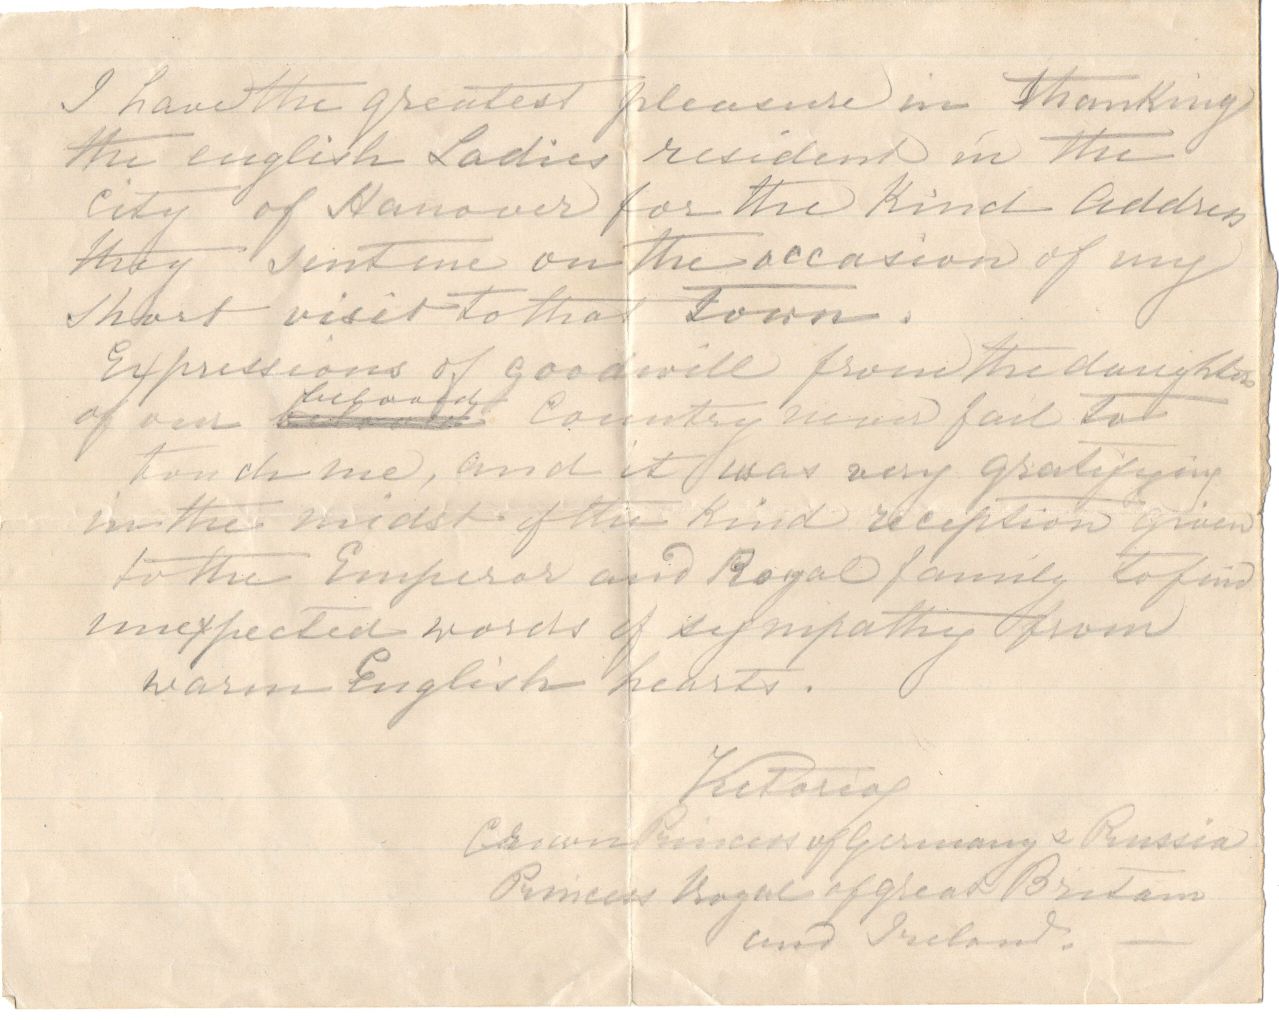 I have the greatest pleasure in thanking
the english Ladies resident in the
city of Hanover for the Kind address
they sent me on the occasion of my
short visit to that town.
Expressions of goodwill from the daughters
beloved
of our country never fail to
touch me, and it was very gratifying
in the midst of the Kind reception given
to the Emperor and Royal family to find
unexpected words of sympathy from
warm English hearts.
Victoria
Crown Princess of Germany & Prussia
Princess Royal of great Britain
and Ireland. —